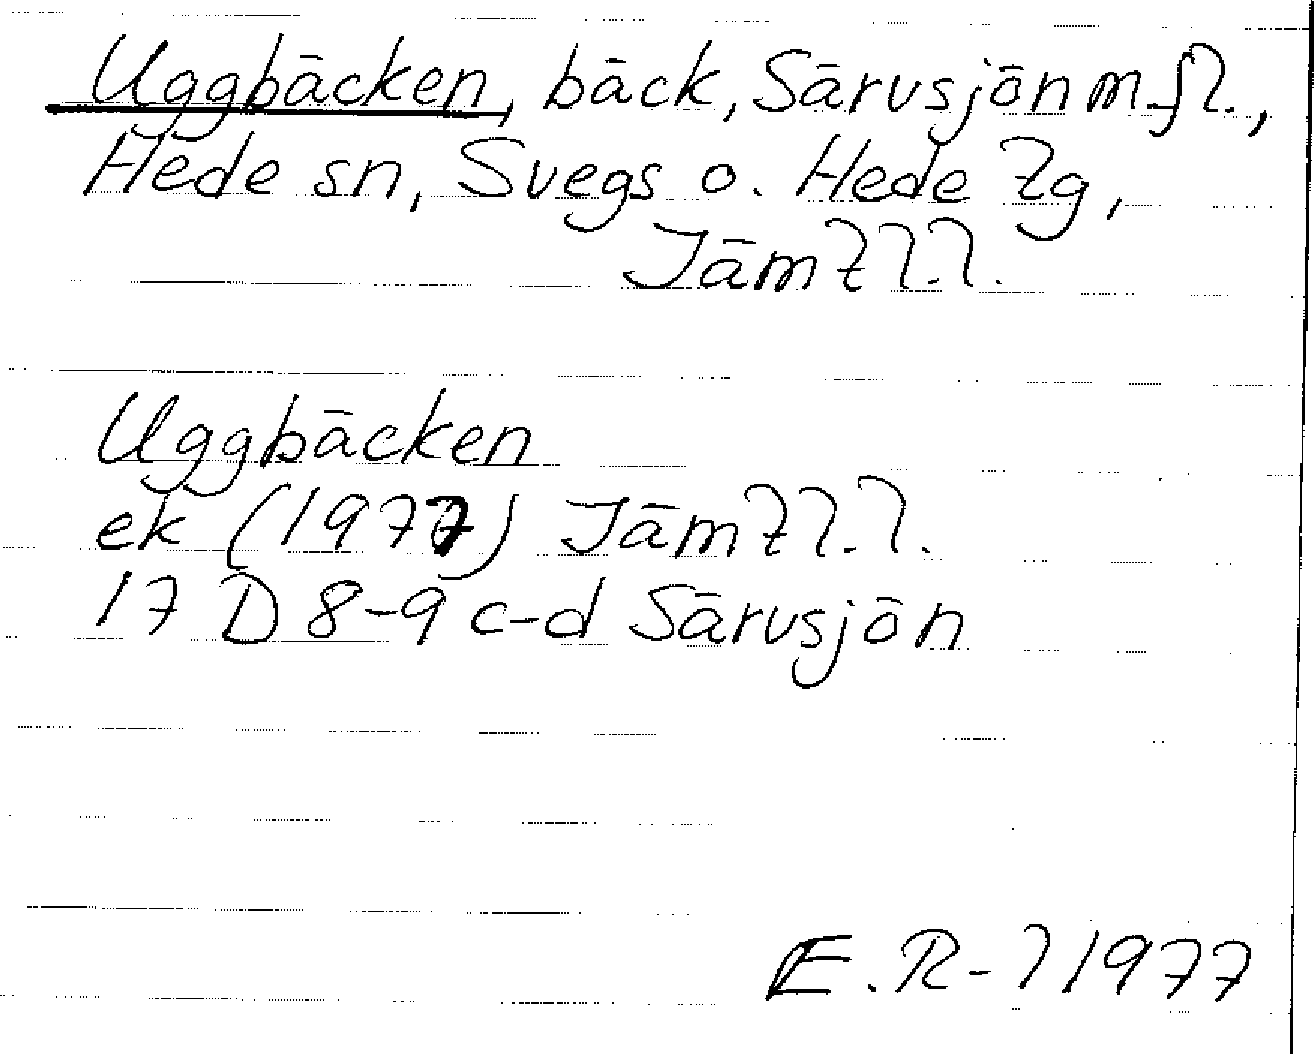 Uggbäcken, bäck, Särusjön m.fl.,
Hede sn, Svegs o. Hede tg,
Jämtl.l.
Uggbäcken
ek (1977) Jämtl.l.
17 D 8-9 c-d Särusjön
E.R-l 1977